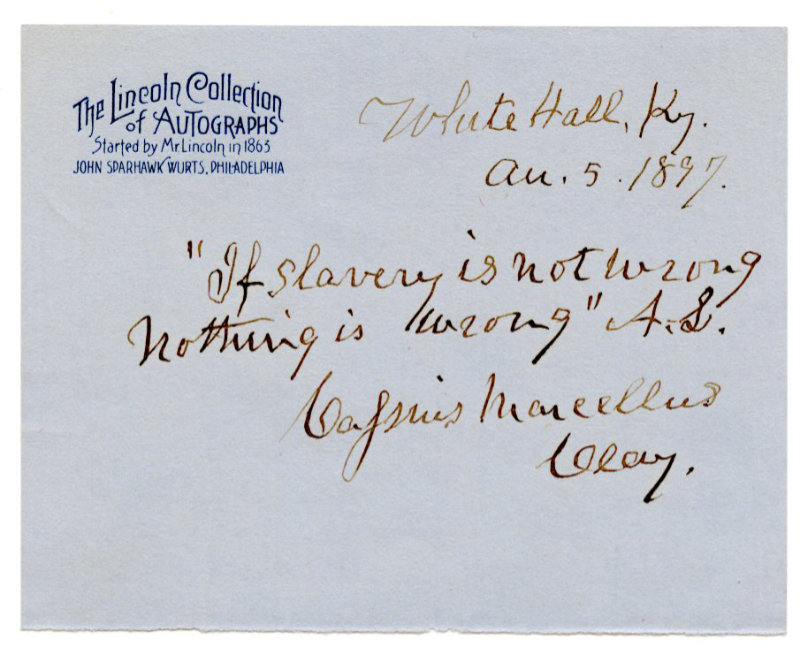 The Lincoln Collection
of AUTOGRAPHS
Started by Mr. Lincoln in 1863
JOHN SPARHAWK WURTS, PHILADELPHIA
White Hall, Ky.
Au. 5. 1897.
"If slavery is not wrong
nothing is wrong" A.L.
Cassius Marcellus
Clay.